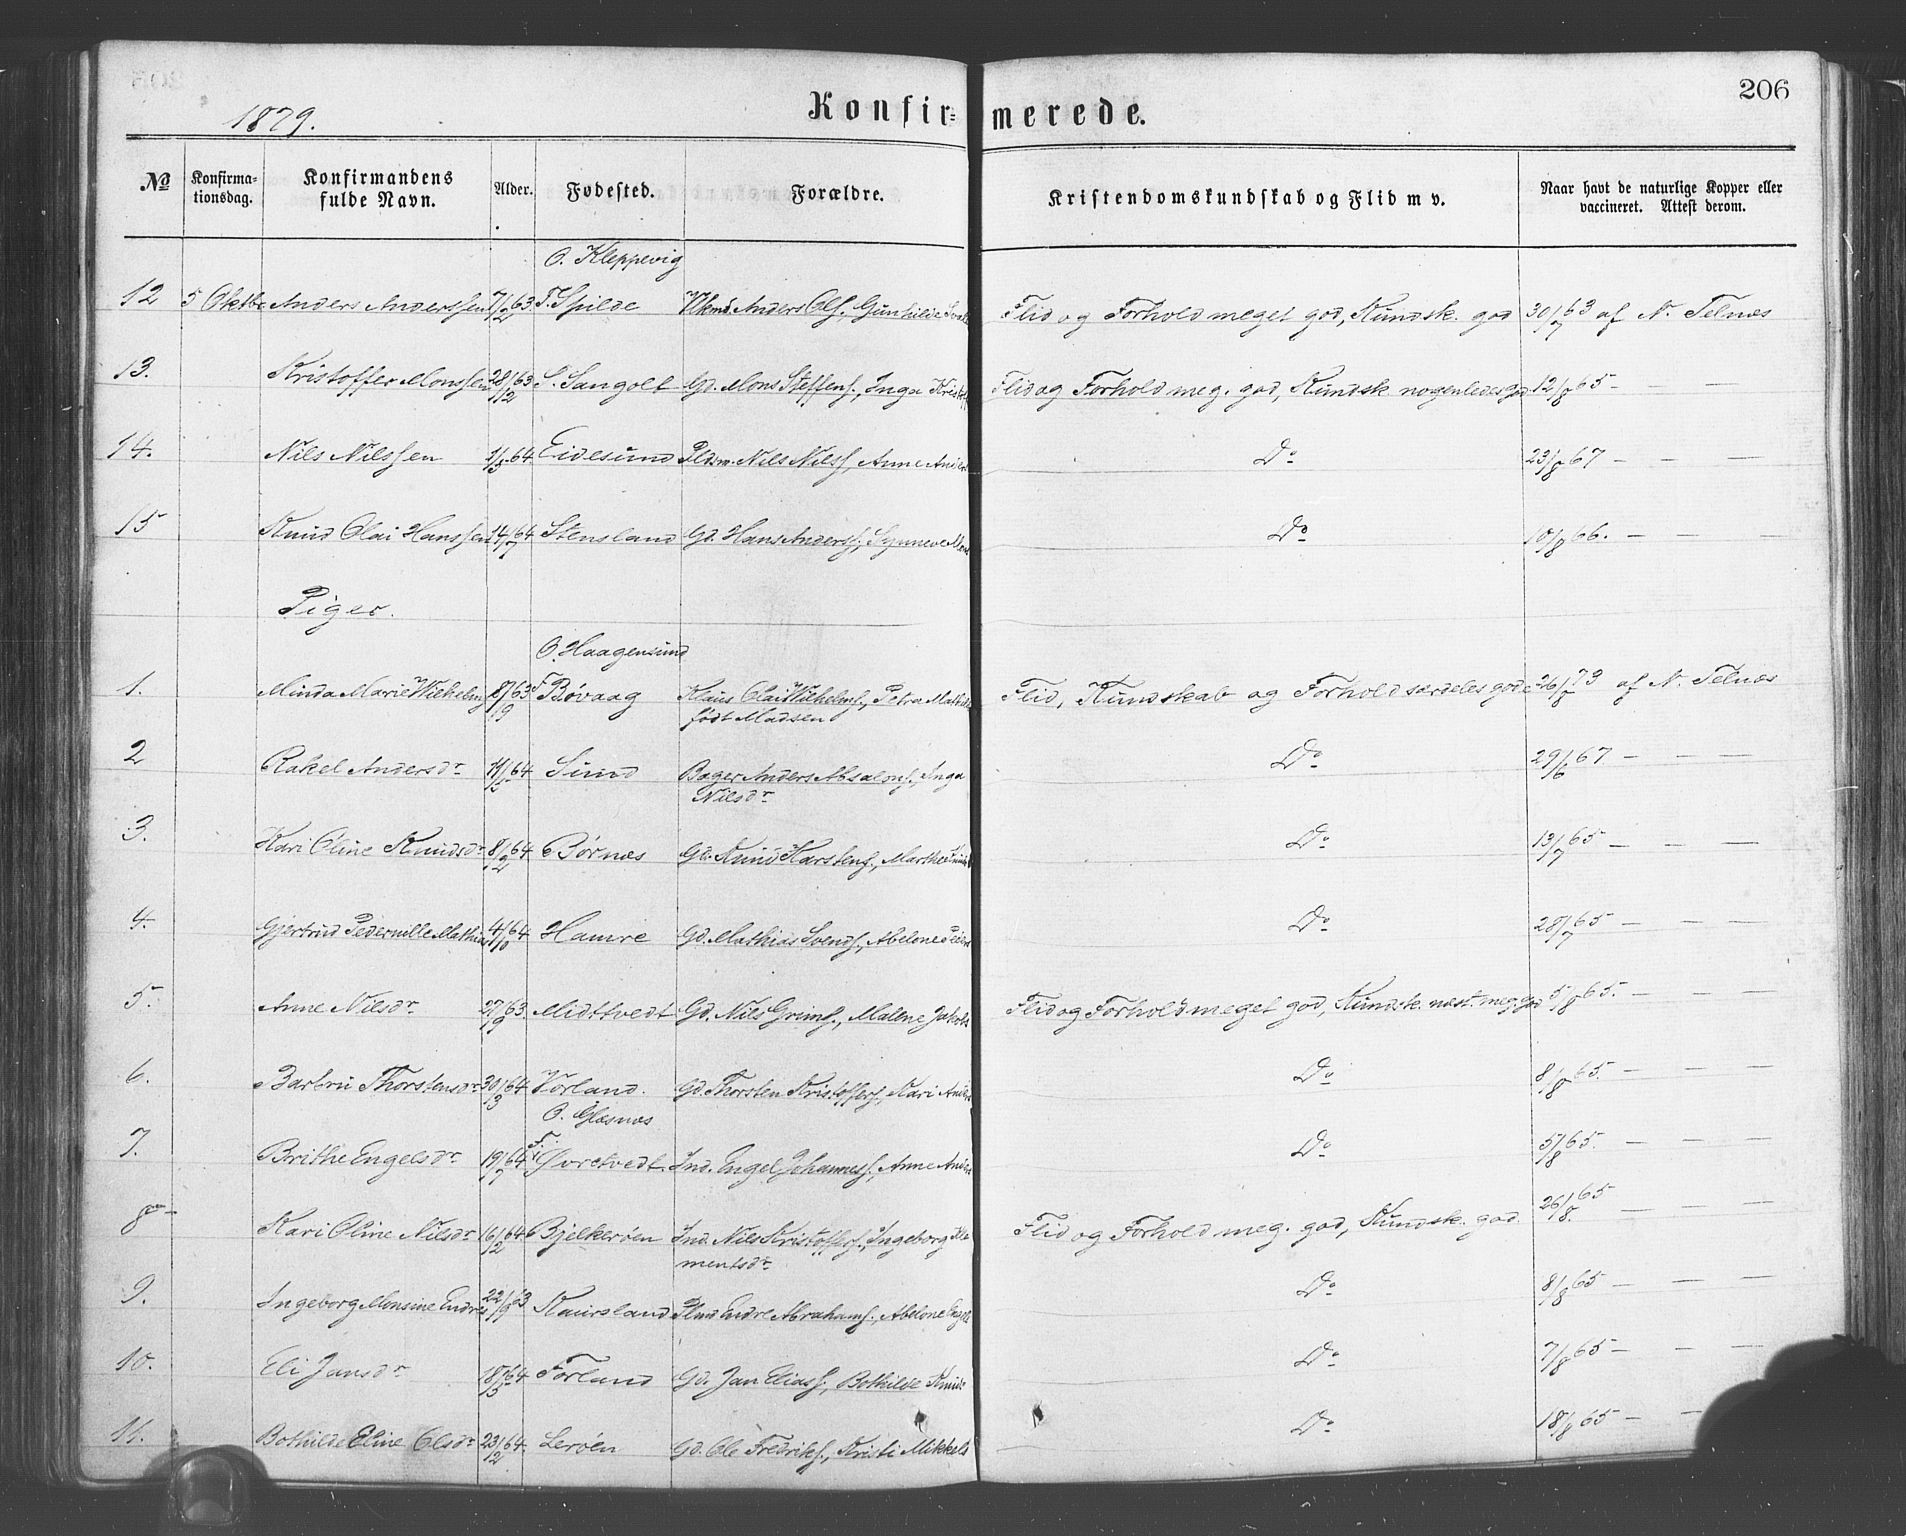 206
1879.
Konfir- merede.
No Konfirmationsdag. Konfirmandens fulde Navn. Alder. Fødested. Forældre. Kristendomskundskab og Flid m v. Naar havt de naturlige Kopper eller vaccineret. Attest derom.
O. Kleppevig
12 5 Oktbr Anders Anderssen 7/2 63 F. Spilde Anders Ols., Gunhilde Flid og Forhold meget god, Kundsk. god 30/7 63 af N. Telnæs
13. Kristoffer Monssen 28/12 63 S. Sangolt Gd. Mons Steffens., Inga Flid og Forhold meg. god, Kundsk nogenledes god 12/8 65 - - -
14. Nils Nilssen 1/3 64 Eidesund Nils Nilss Anne Anders Do 23/8 67 - - -
15 Knud Olai Hanssen 14/7 64 Stensland Gd. Hans Anderss, Synneve Do 10/8 66. - - -
Piger.
O. Haagensund
1. Minda Marie Wilhelms 8/9 63 F Bøvaag Klaus Olai Wilhelms., Petra Flid, Kundskab og Forhold særdeles god 26/8 79 af N. Telnæs
født Madsen
2 Rakel Andersdr 64 Sund Bager Anders Absalons., Inga Do 29/6 67 - - -
Nilsdr
3. Kari Oline Knudsdr 8/2 64 Børnæs Gd. Knud Karstens., Marthe Do 13/7 65 - - -
4. Gjertrud Pedernille Mathias 64 Hamre Gd. Mathias Svends., Abelone Peders Do 28/7 65 - - -
5. Anne Nilsdr 27/9 63. Midttvedt Gd. Nils Grims., Malene Jakobs Flid og Forhold meget god, Kundsk. næst. meg. god 5/8 65. - - -
6. Barbru Thorstensdr 30/3 64 Vorland. Gd. Thorsten Kristoffers, Kari Anders Do 8/8 65. - - -
O. Glæsnæs
7. Brithe Engelsdr 19/7 64 F. Øvretvedt. Ind. Engel Johanness., Anne Do 5/8 65. - - -
8 Kari Oline Nilsdr 16/2 64 Bjelkerøen Ind. Nils Kristoffers., Ingeborg Kle Flid og Forhold meg. god, Kundsk. god 26/8. 65 - - -
mentsdr
9. Ingeborg Monsine Endres 22/9 63 Kaursland Endre Abrahams., Abelone Engels Do 8/8 65 - - -
10. Eli Jansdr 18/5 64 Forland Gd. Jan Eliass., Bothilde Knuds Do 7/8 65 - - -
11. Bothilde Eline Olsdr 23/2 64. Lerøen Gd. Ole Fredriks., Kristi Mikkels Do 18/8 65 - -